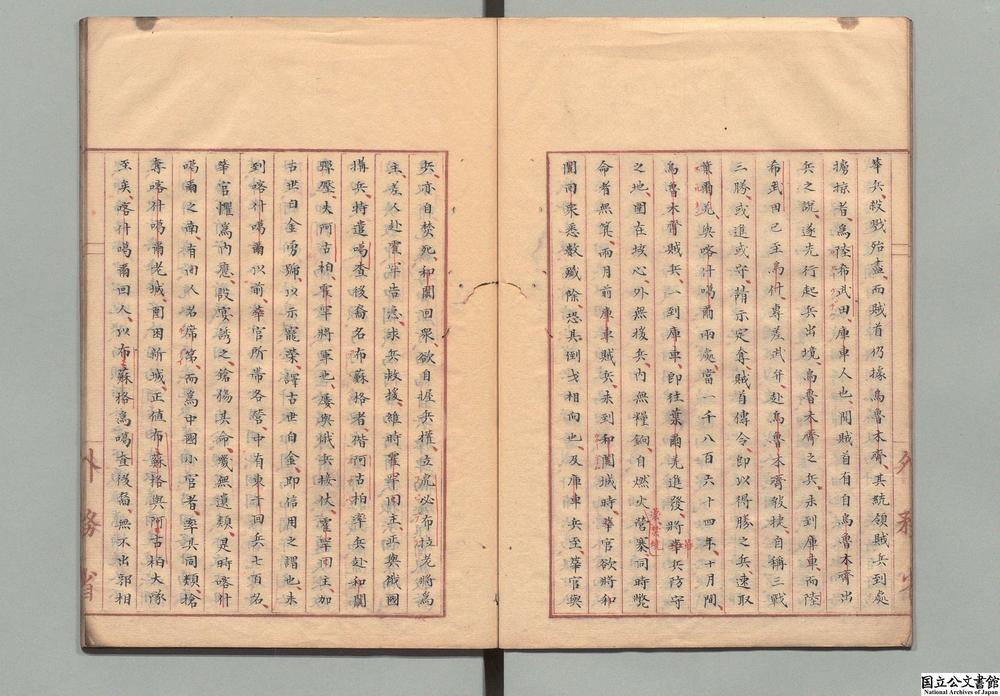 華兵、殺戮殆盡、而賊首仍據烏魯木齊、其統領賊兵到處
擄掠者、為陸布武田、庫車人也、聞賊首有自烏魯木齊出
兵之說、遂先行起兵出境、烏魯木齊之兵、未到庫車、而陸
希武田已至烏什、專差武弁赴烏魯木齊、報捷、自稱三戰
三勝、或進或守、請示定奪、賊首傳令、即以得勝之兵、速取
葉爾羌、與喀什噶爾兩處、當一千八百六十四年、十月間、
烏魯木齊賊兵、一到庫車、即往葉爾羌進發、將華兵防守
之地、圍在垓心、外無援兵、內無糧餉、自燃火營寨、同時斃
命者無算、兩月前庫車賊兵、未到和闐城時、華官欲將和
闐回眾悉數殲除、恐其倒戈相向也、及庫車兵至、華官與
兵、亦自焚死、和闐回眾欲自握兵權、立虎必布拉老將為
主、差人赴霍罕告急、求兵救援、維時霍罕回主、正與俄國
搆兵、特遣噶查後裔名布蘇格者、偕阿古柏率兵赴和闐
鄰壓夫阿古柏、霍罕將軍也、屢與俄兵接仗、霍罕回主、加
古世自金勇號、以示寵榮、譯古世自金、即信用之謂也、未
到喀什噶爾以前、華官所帶各營、中有東干回兵七百名、
華官懼為內應、設宴誘之、鎗傷其命、靡無遺類、是時喀什
噶爾之南、有回人名席第、而為中國小官者、率其同類、搶
奪喀什噶爾老城、圍困新城、正值布蘇格與阿古柏大隊
至矣、喀什噶爾回人、以布蘇格為噶查後裔、無不出郭相
外務省
国立公文書館
National Archives of Japan